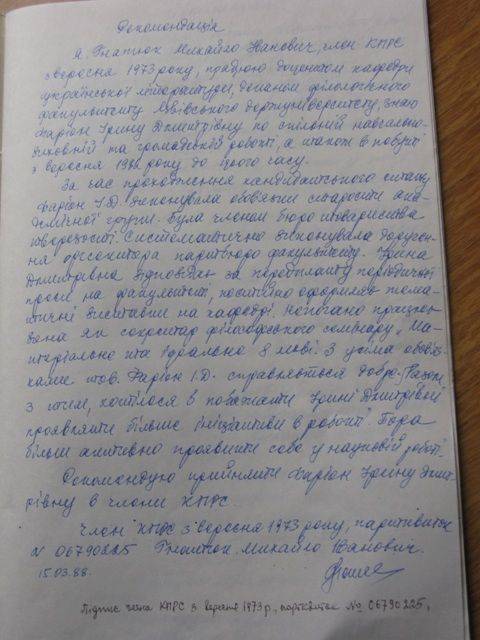 Рекомендація
Я, Гнатюк Михайло Іванович, член КПРС
з вересня 1973 року, працюю доцентом кафедри
української літератури, деканом філологічного
факультету Львівського держуніверситету, знаю
Фаріон Ірину Дмитрівну по спільній навчально-
виховній та громадській роботі, а також в побуті
з вересня 1982 року до цього часу.
За час проходження кандидатського стажу
Фаріон І.Д. виконувала обовязки старости ака-
демічної групи. Була членом бюро товариства
тверезості. Систематично виконувала доручен-
ня оргсектора партбюро факультету. Ірина
Дмитрівна відповідає за передплату періодичної
преси на факультеті, постійно оформляє тема-
тичні виставки на кафедрі. Непогано працює
вона як секретар філософського семінару "Ма-
теріальне та ідеальне в мові". З усіма обовяз-
ками тов. Фаріон І.Д. справляється добре. Разом
з тим, хотілося б побажати Ірині Дмитрівні
проявляти більше ініціативи в роботі. Пора
більш активно проявити себе у науковій роботі.
Рекомендую прийняти Фаріон Ірину Дмит-
рівну в члени КПРС.
Член КПРС з вересня 1973 року, партквиток
N 06790225 Гнатюк Михайло Іванович.
15.03.88.
Підпис члена КПРС з вересня 1973 р, партквиток № 06790225,